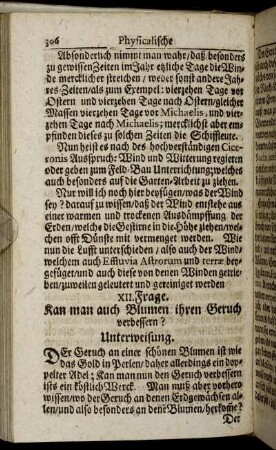 306 Physicalische
Absonderlich nimmt man wahr/daß besonders
zu gewissen Zeiten im Jahr etzliche Tage die Win-
de mercklicher streichen/ weder sonst andere Jah-
res-Zeiten/als zum Exempel: vierzehen Tage vor
Ostern und vierzehen Tage nach Ostern/gleicher
Massen vierzehen Tage vor Michaelis, und vier-
zehen Tage nach Michaelis; mercklichst aber em-
pfinden dieses zu solchen Zeiten die Schiffleute.
Nun heist es nach des hochverständigen Cice-
ronis Ausspruch: Wind und Witterung regieren
oder geben zum Feld-Bau Unterrichtung; welches
auch besonders auf die Garten-Arbeit zu ziehen.
Nur will ich noch hier beyfügen/was der Wind
sey? darauf zu wissen/daß der Wind entstehe aus
einer warmen und trockenen Ausdämpffung der
Erden/welche die Gestirne in die Höhe ziehen/wel-
chen offt Dünste mit vermenget werden. Wie
nun die Lufft unterschieden/ also auch der Wind/
welchem auch Effluvia Astrorum und terræ bey-
gefüget/und auch diese von denen Winden getrie-
ben/zuweilen geleutert und gereiniget werden
XII. Frage.
Kan man auch Blumen ihren Geruch
verbessern?
Unterweisung.
DEr Geruch an einer schönen Blumen ist wie
das Gold in Perlen/daher allerdings ein dop-
pelter Adel; Kan man nun den Geruch verbessern
ists ein köstlich Werck. Man muß aber vorhero
wissen/wo der Geruch an denen Erdgewächsen al-
len/und also besonders an denē Blumen/herkom̄e?
Der